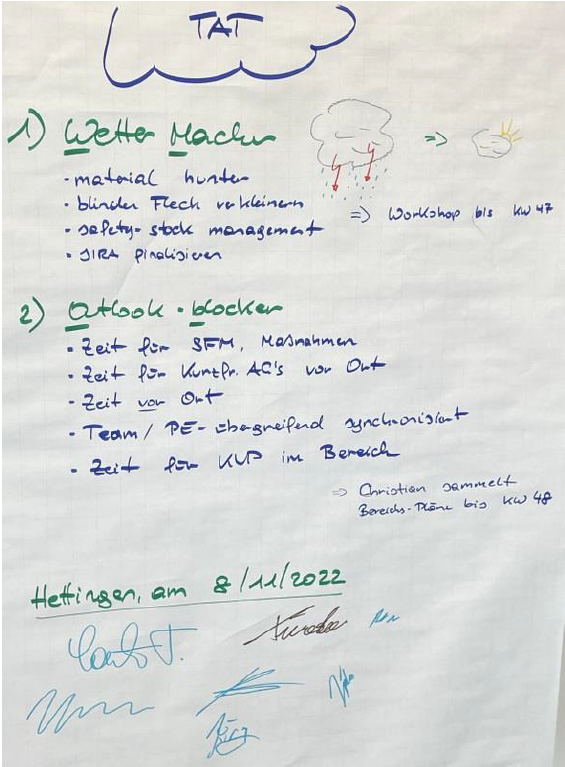 TAT
1) Wetter Macher
• material hunter
• blinder Fleck verkleinern
• safety-stock management
• JIRA finalisieren
=> Workshop bis KW 47
2) Outlook-blocker
• Zeit für SFM, Maßnahmen
• Zeit für Kurzfr. AG's vor Ort
• Zeit vor Ort
• Team/ PE-übergreifend synchronisiert
• Zeit für KVP im Bereich
=> Christian sammelt
Bereichs-Pläne bis KW 48
Hettingen, am 8/11/2022